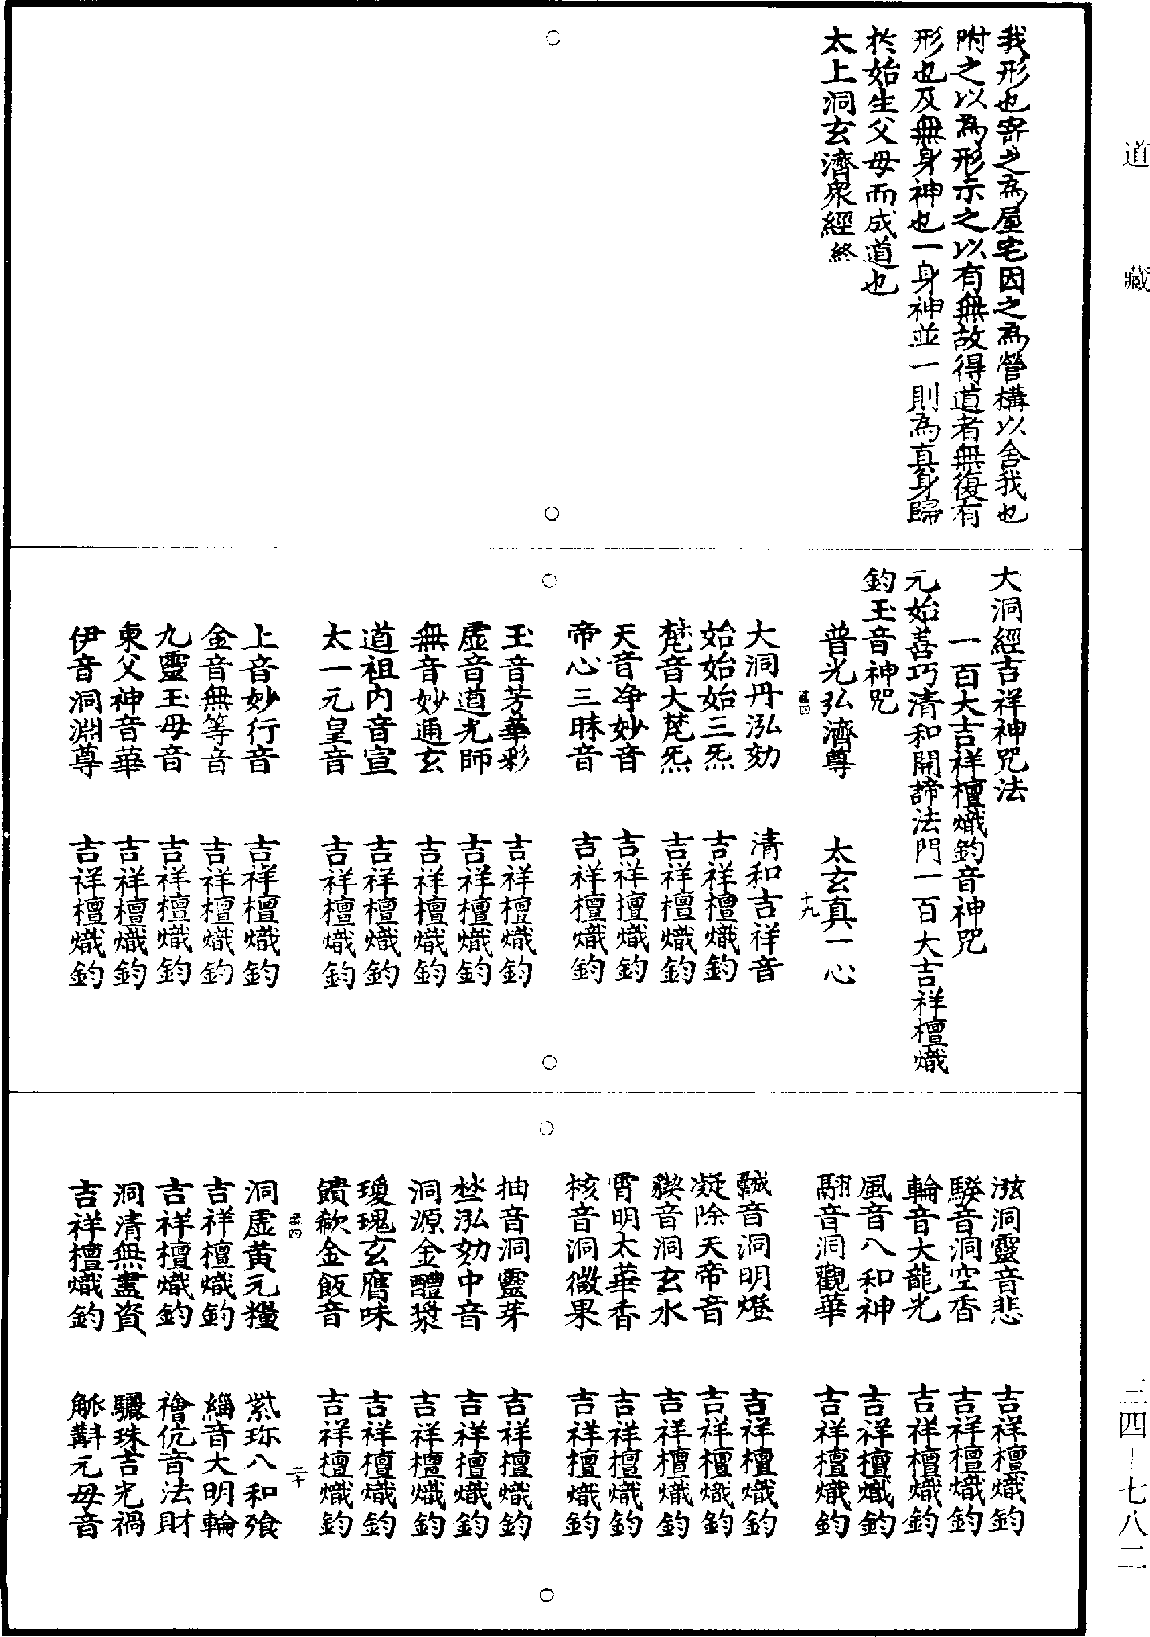 道藏
我形也寄之為屋宅因之為營構以舍我也
附之以為形示之以有無故得道者無復有
形也及無身神也一身神並一則為真身歸
於始生父母而成道也
太上洞玄濟衆經終
大洞經吉祥神咒法
一百大吉祥檀熾鈞音神咒
元始善巧清和開諦法門一百大吉祥檀熾
鈞玉音神咒
普光弘濟尊 太玄真一心
十九
大洞丹泓劾 清和吉祥音
始始始三炁 吉祥檀熾鈞
梵音大梵炁 吉祥檀熾鈞
天音净妙音 吉祥檀熾鈞
帝心三昧音 吉祥檀熾鈞
玉音芳華彩 吉祥檀熾鈞
虛音道光師 吉祥檀熾鈞
無音妙通玄 吉祥檀熾鈞
道祖内音宣 吉祥檀熾鈞
太一元皇音 吉祥檀熾鈞
上音妙行音 吉祥檀熾鈞
金音無等音 吉祥檀熾鈞
九靈玉母音 吉祥檀熾鈞
東父神音華 吉祥檀熾鈞
伊音洞淵尊 吉祥檀熾鈞
洞靈音悲 吉祥檀熾鈞
音洞空香 吉祥檀熾鈞
輪音大龍光 吉祥檀熾鈞
風音八和神 吉祥檀熾鈞
翮音洞觀華 吉祥檀熾鈞
音洞明燈 吉祥檀熾鈞
凝除天帝音 吉祥檀熾鈞
音洞玄水 吉祥檀熾鈞
霄明太華香 吉祥檀熾鈞
核音洞微果 吉祥檀熾鈞
抽音洞靈芽 吉祥檀熾鈞
泓劾中音 吉祥檀熾鈞
洞源金醴漿 吉祥檀熾鈞
瓊瑰玄膺味 吉祥檀熾鈞
饋歙金飯音 吉祥檀熾鈞
二十
洞虛黃元糧 紫珎八和飡
吉祥檀熾鈞 緇音大明輪
吉祥檀熾鈞 禬伉音法財
洞清無盡資 驪珠吉光禍
吉祥檀熾鈞 元母音
三四—七八二